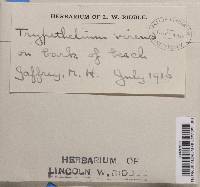 HERBARIUM OF L. W. RIDDLE.
Trypethelium virens
on bark of beech
Jaffrey, N. H. July 1916
HERBARIUM OF
LINCOLN W. RIDDLE